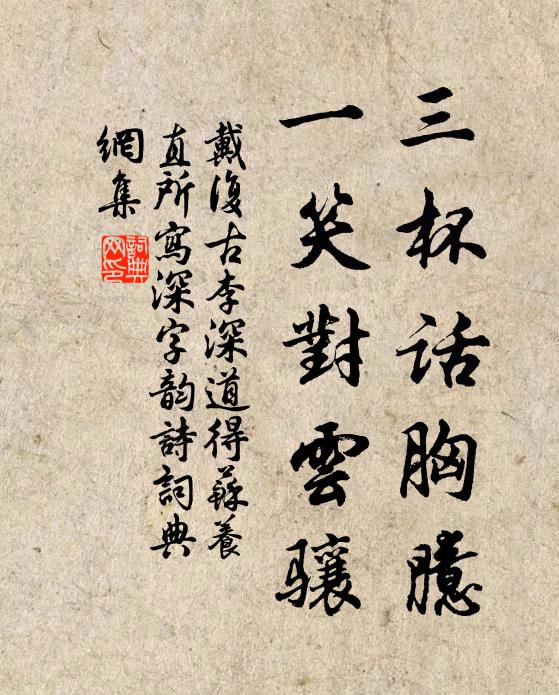 三杯话胸臆
一笑對雲骧
戴復古李深道得蘇養
直所寫深字韵詩詞典
網集
詞典
网印